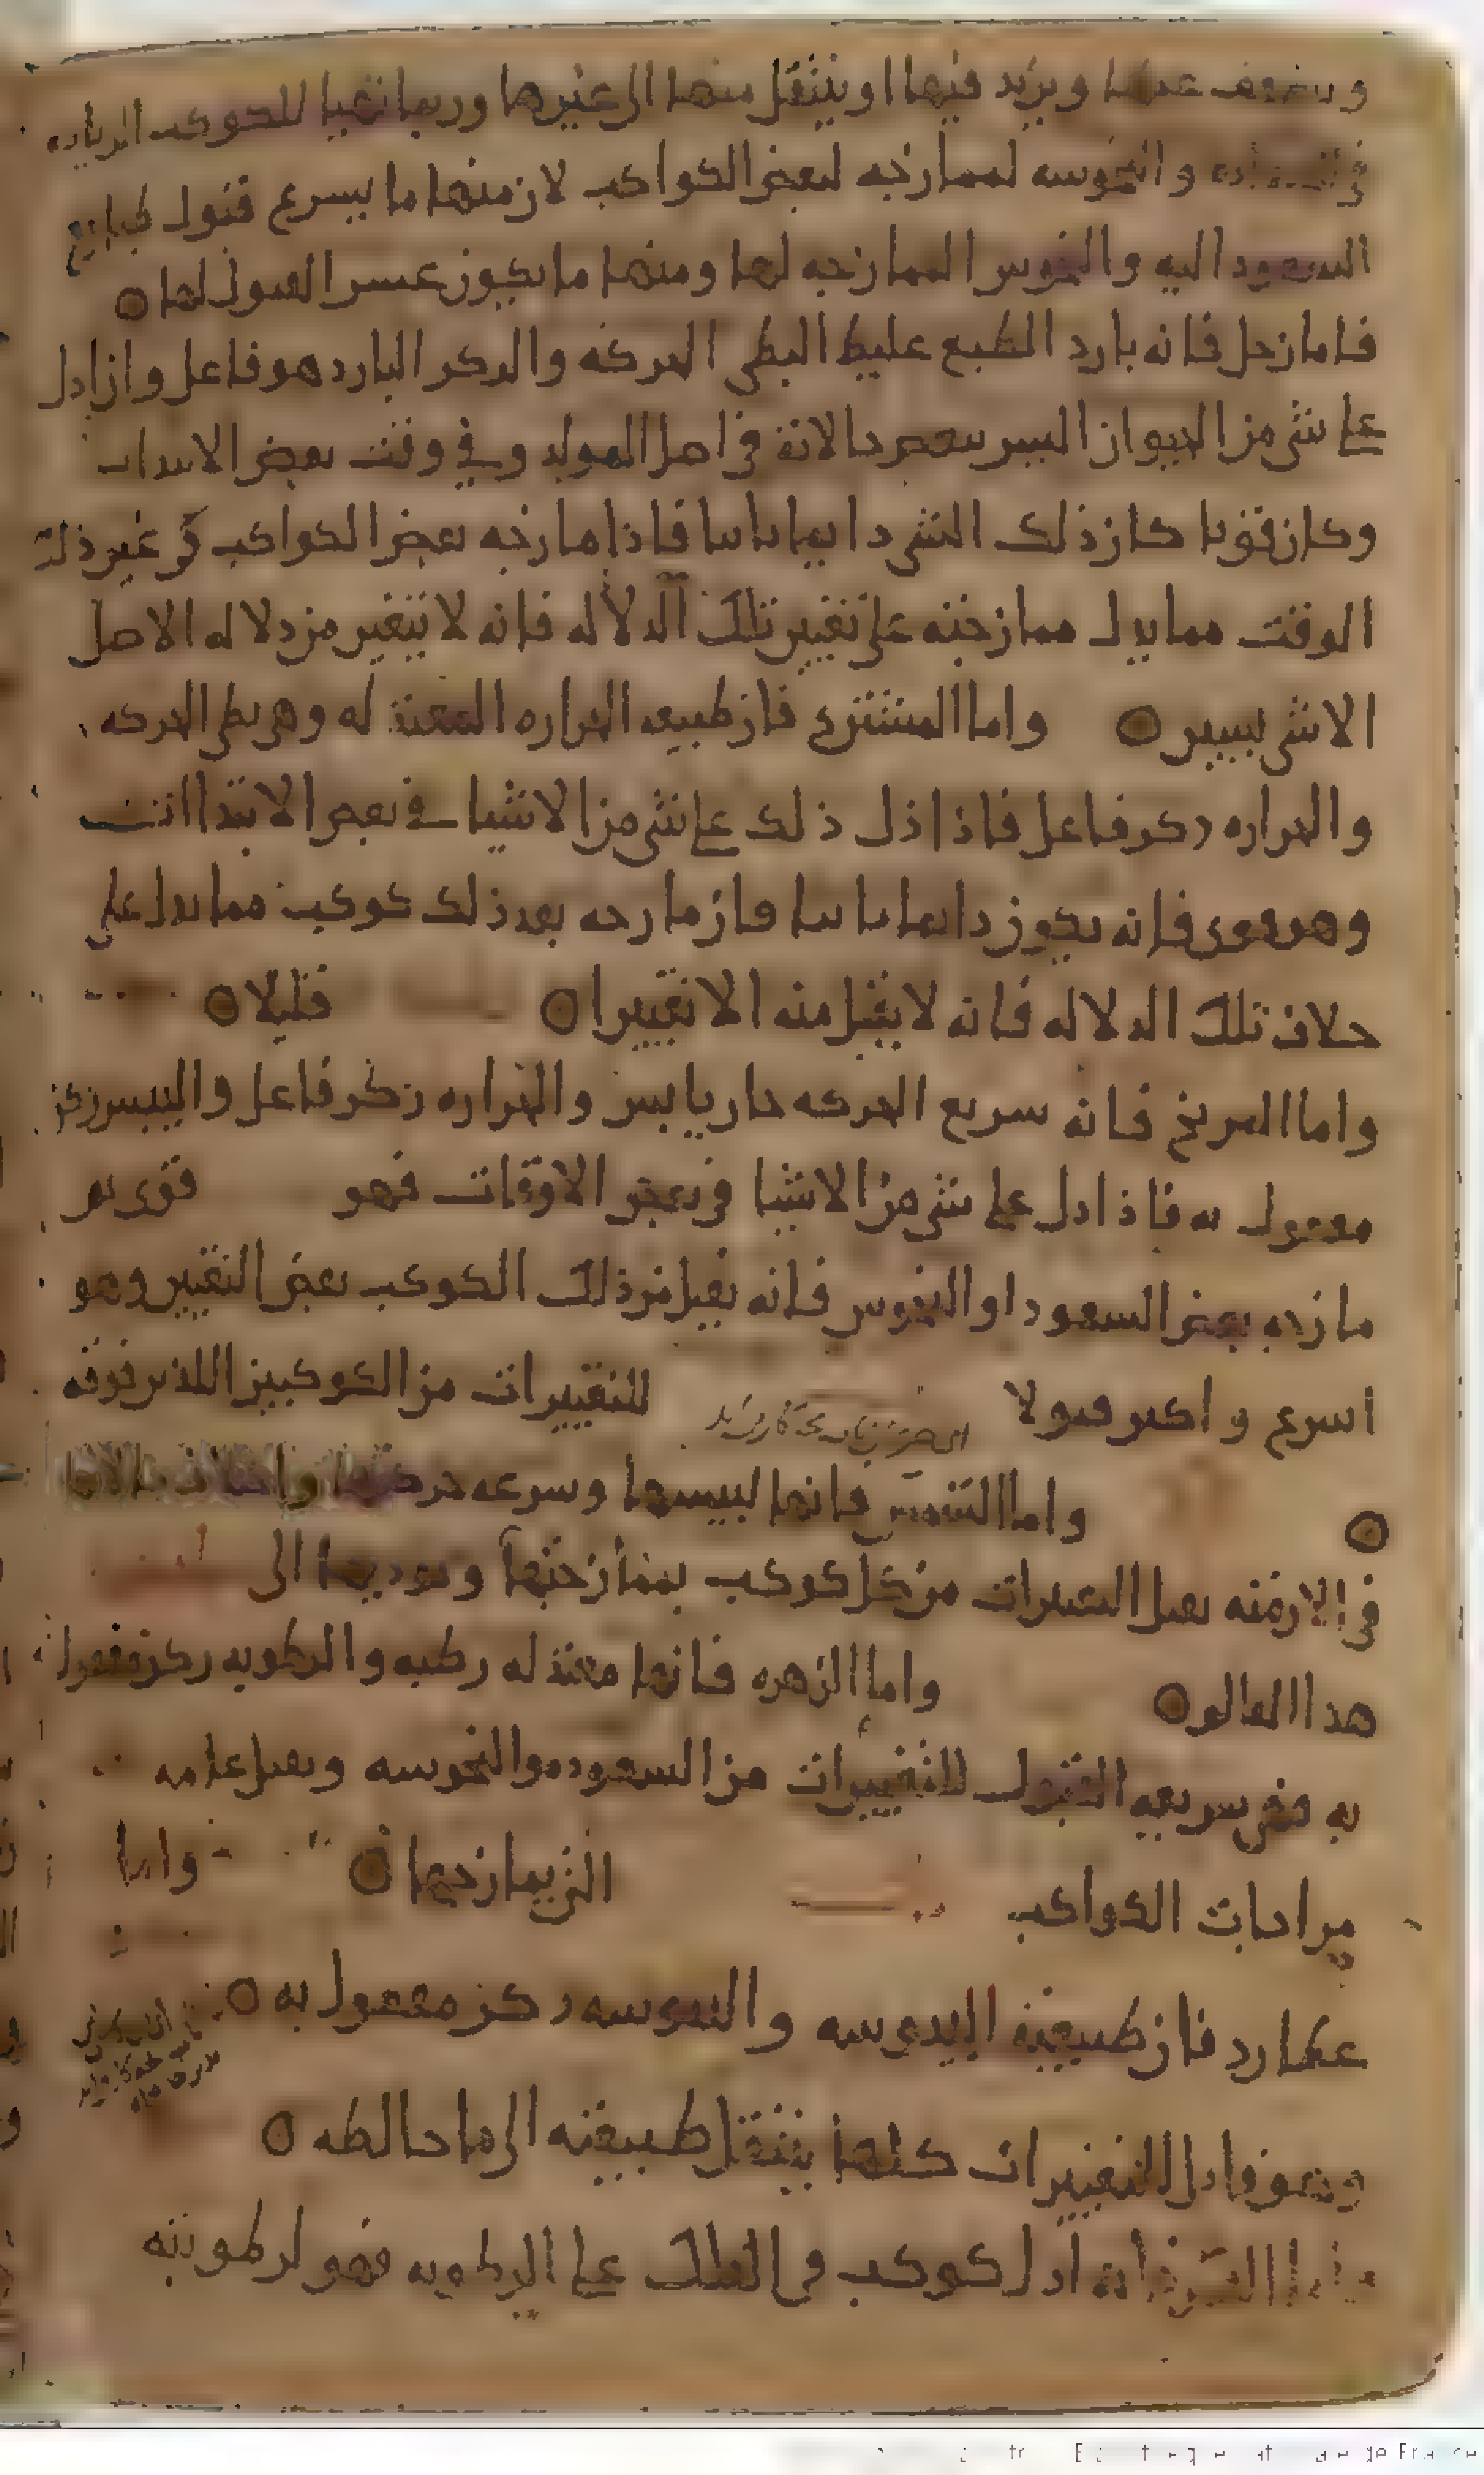 عنها ويزيد فيها او ينتقل منها الى غيرها وربما تهيا للكوكب الزياده
والنحوسه لممازجه لبعض الكواكب لان منها ما يسرع قبول طبايع
السعود اليه والنحوس الممازجه لها ومنها ما يكون عسر القبول لها ○
فاما زحل فانه بارد الطبع غليظ البطى الحركه والذكر البارد هو فاعل واذا دل
على شى من الحيوان اليبس بالاته فى اصل المولد وفى وقت بعض الابتداات
وكان قويا كان ذلك الشى دايما ثابتا فاذا مازجه بعض الكواكب فى غير ذلك
الوقت مما يدل ممازجته على تغيير تلك الدلاله فانه لا يتغير من دلاله الاصل
الا شى يسير ○ واما المشترى فان طبيعه الحراره المعتدله وهو بطى الحركه
والحراره ذكر فاعل فاذا دل ذلك على شى من الاشيا فى بعض الابتداات
وهو قوى فانه يكون دايما ثابتا فان مازجه بعد ذلك كوكب مما يدل على
خلاف تلك الدلاله فانه لا يقبل منه الا تغييرا ○ قليلا ○
واما المريخ فانه سريع الحركه حار يابس والحراره ذكر فاعل واليبس ذكر
مفعول به فاذا دل على شى من الاشيا فى بعض الاوقات فهو قوى ثم
مازجه بعض السعود او النحوس فانه يقبل من ذلك الكوكب بعض التغيير وهو
اسرع واكثر قبولا للتغييرات من الكوكبين اللذين فوقه
○ واما الشمس فانها ليبسها وسرعه حركتها واختلاف حالاتها
فى الازمنه تقبل التغييرات من كل كوكب يمازجها وتوديها الى
هذا العالم ○ واما الزهره فانها معتدله رطبه والرطوبه ذكر مفعول
به فهى سريعه القبول للتغييرات من السعوده والنحوسه وتقبل عامه
مزاجات الكواكب التى يمازجها ○ واما
عطارد فان طبيعته اليبوسه واليبوسه ذكر مفعول به ○
للتغييرات كلها ينتقل طبيعته الى ما خالطه ○
واما القمر فانه ادل كوكب فى الفلك على الرطوبه فهو لرطوبته